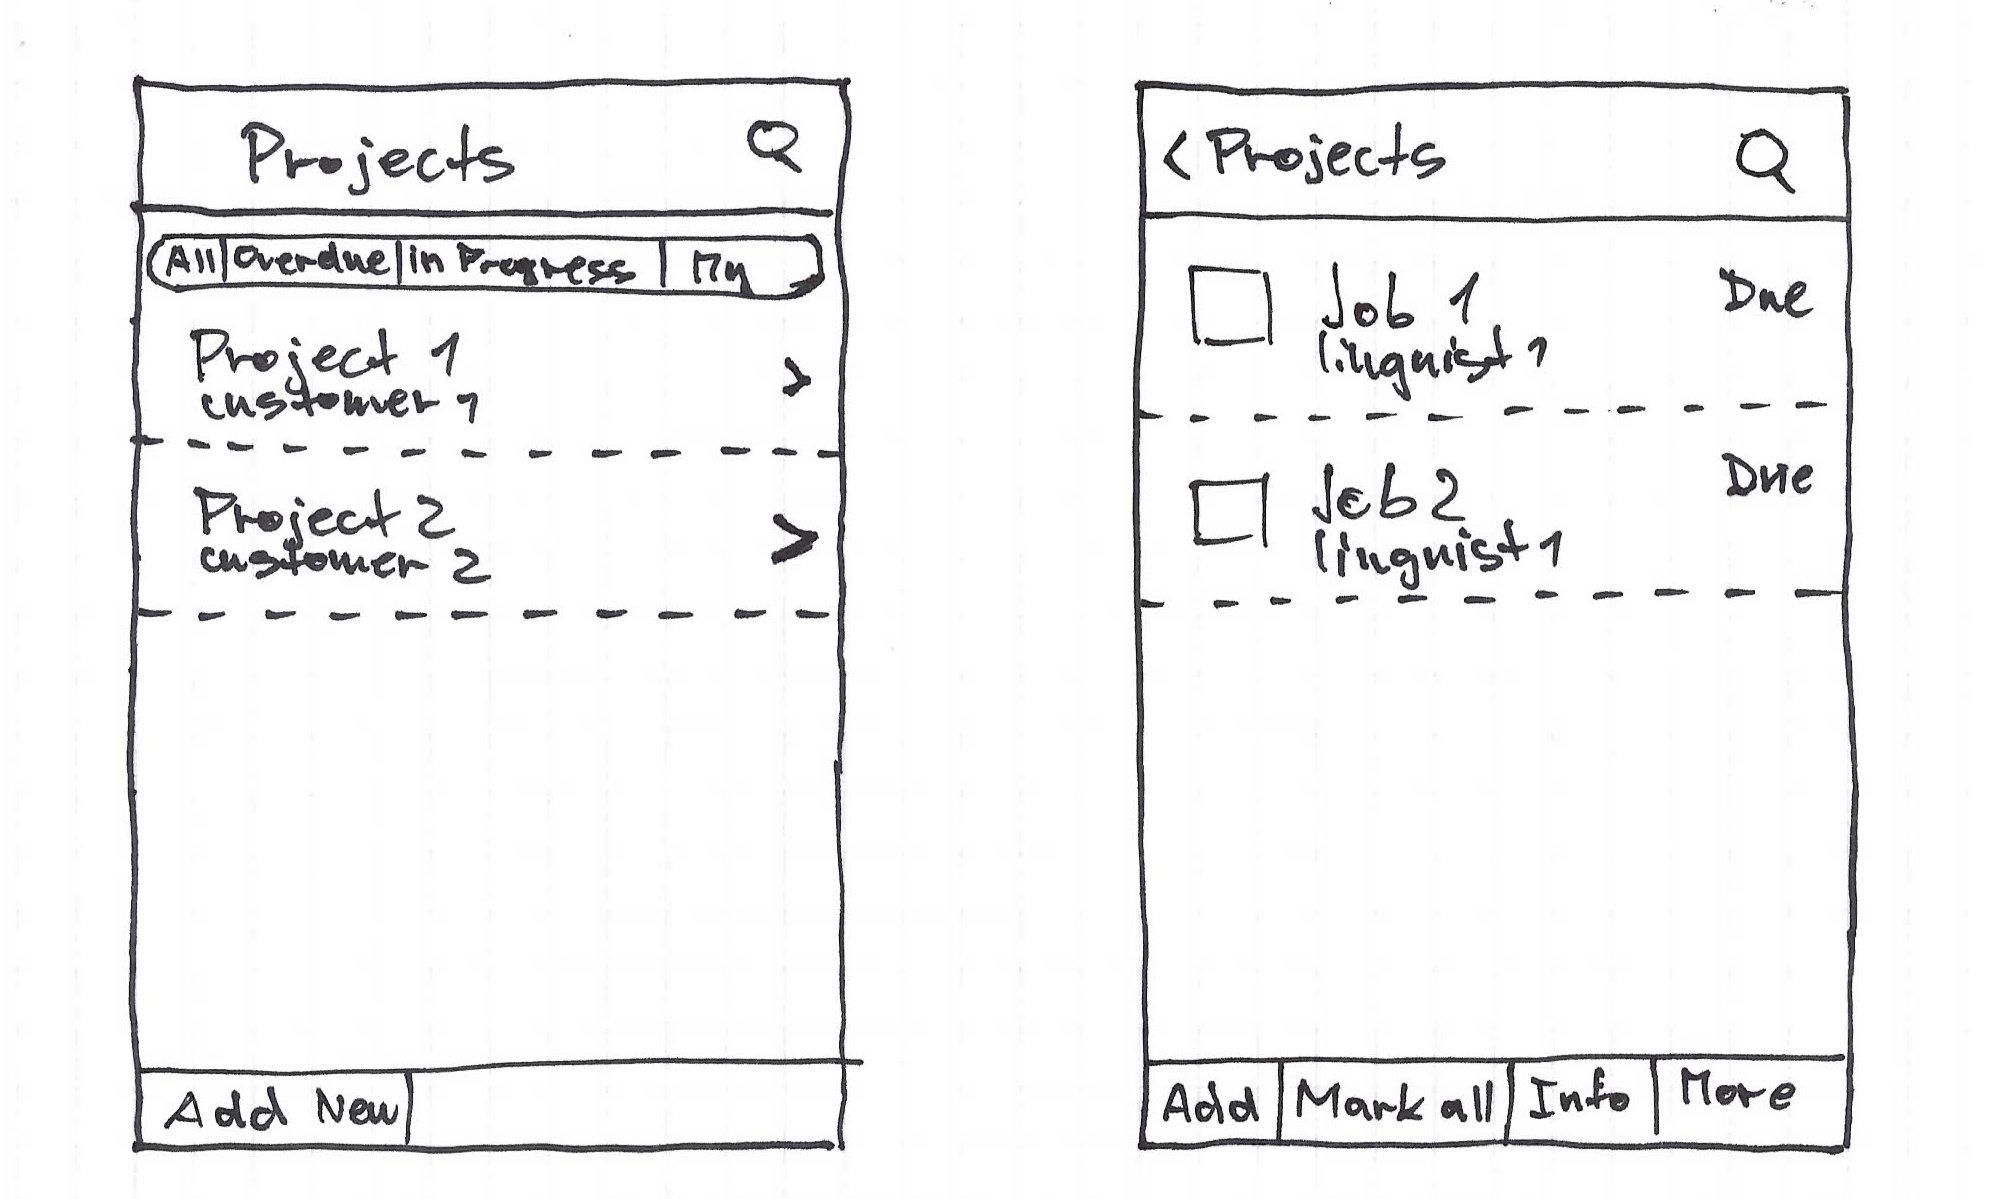 Projects
All Overdue in Progress My
Project 1
customer 1
Project 2
customer 2
Add New
< Projects
Job 1 Due
linguist 1
Job 2 Due
linguist 1
Add Mark all Info More